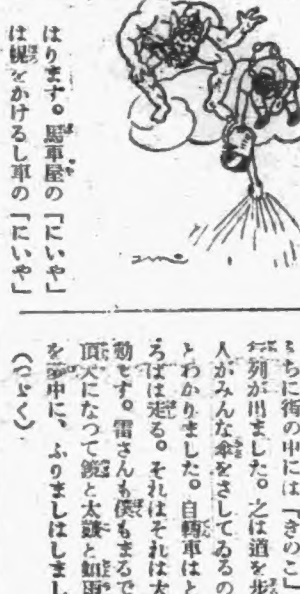 はります。馬車屋の「にいや」
は幌をかけるし車の「にいや」
ちに街の中には「きのこ」
行列が出ました。之は道を歩
人がみんな傘をさしてゐるの
とわかりました。自轉車はと
ろばは走る。それはそれは大
動です。雷さんも僕もまるで
頂天になって鏡と太鼓と如雨
を夢中に、ふりましはしまし
(つゞく)